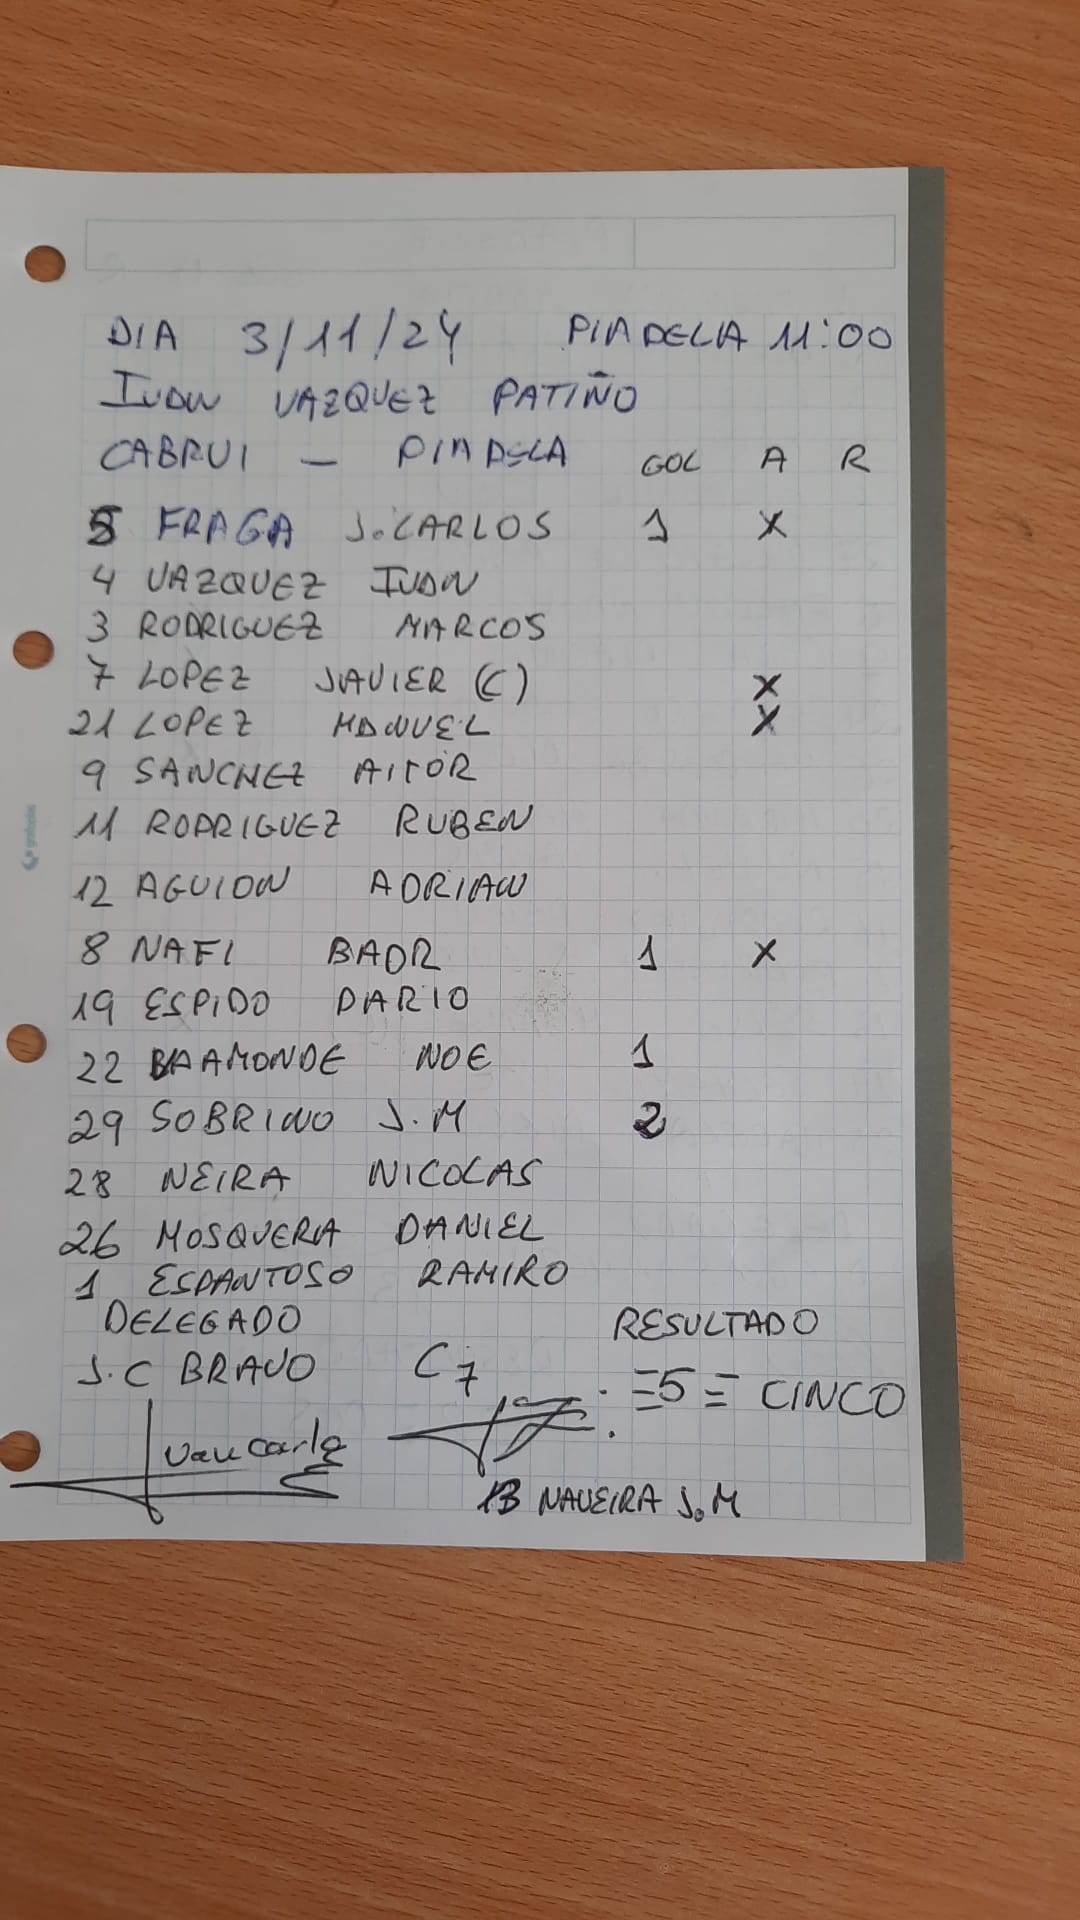 DIA 3/11/24 PIADELA 11:00
IVAN VAZQUEZ PATIÑO
CABRUI - PIADELA GOL A R
5 FRAGA J.CARLOS 1 X
4 VAZQUEZ IVAN
3 RODRIGUEZ MARCOS
7 LOPEZ JAVIER (C) X
21 LOPEZ MANUEL X
9 SANCHEZ AITOR
11 RODRIGUEZ RUBEN
12 AGUION ADRIAN
8 NAFI BADR 1 X
19 ESPIDO DARIO
22 BAAMONDE NOE 1
29 SOBRINO J.M 2
28 NEIRA NICOLAS
26 MOSQUERA DANIEL
1 ESPANTOSO RAMIRO
DELEGADO RESULTADO
J.C BRAVO C7 5 CINCO
13 NAVEIRA J.M